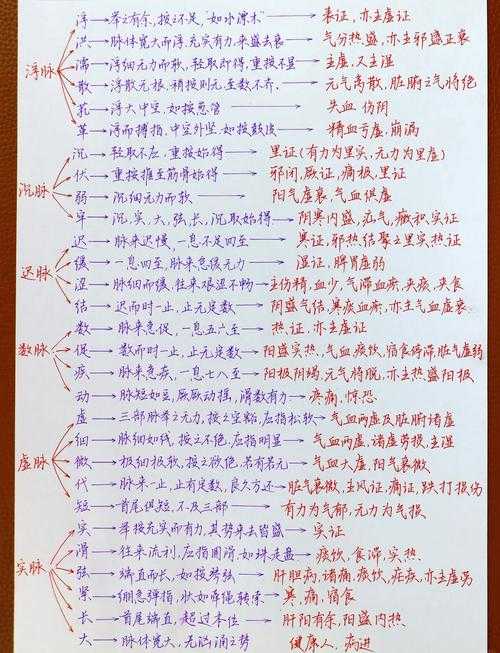 浮脉
浮→举之有余,按之不足,"如水漂木"→表证,亦主虚证
洪→脉体宽大而浮,充实有力,来盛去衰→气分热盛,亦主邪盛正衰
濡→浮细无力而软,轻取即得,重按不显→主虚,又主湿
散→浮散无根,稍按则无,至数不齐.→元气离散,脏腑之气将绝
芤→浮大中空,如按葱管→失血 伤阴
革→浮而搏指,中空外坚,如按鼓皮→精血亏虚,崩漏
沉脉
沉→轻取不应,重按始得→里证(有力为里实,无力为里虚)
伏→重按推至筋骨始得→邪闭,厥证,痛极,里证
弱→沉细无力而软→阳气虚衰,气血俱虚
牢→沉,实,大,弦,长,沉取始得→阴寒内盛,疝气,癥积,实证
迟脉
迟→脉来迟慢,一息不足四至→寒证,邪热结聚之里实热证
缓→一息四至,脉来怠缓无力→湿证,脾胃虚弱
涩→脉细而缓,往来艰涩不畅→主伤精,血少,气滞血瘀,夹痰,夹食
结→迟而时一止,止无定数→阴盛气结,寒痰血瘀,亦主气血虚衰
数脉
数→脉来急促,一息五六至→热证,亦主虚证
促→数而时一止,止无定数→阳盛实热,气血痰饮,宿食停滞,脏气虚弱
疾→脉来急疾,一息七八至→阳极阴竭,元气将脱,亦主热盛阳极
动→脉短如豆,厥厥动摇,滑数有力→疼痛,惊恐
虚脉
虚→三部脉举之无力,按之空豁,应指松软→气血两虚及脏腑诸虚
细→脉细如线,按之不绝,应指明显→气血两虚,诸虚劳损,主湿
微→极细极软,按之欲绝,若有若无→气血大虚,阳气衰微
代→脉来一止,止有定数,良久方还→脏气衰微,主风证,痛证,跌打损伤
短→首尾俱短,不及三部→有力为气郁,无力为气损
实脉
实→举按充实而有力,其势来去皆盛→实证
滑→往来流利,应指圆滑,如珠走盘→痰饮,食滞,实热
弦→端直而长,如按琴弦→肝胆病,诸痛,痰饮,疟疾,亦主虚劳
紧→绷急弹指,状如牵绳转索→寒,痛,宿食
长→首尾端直,超过本位→肝阳有余,阳盛内热
大→脉体宽大,无汹涌之势→健康人,病进